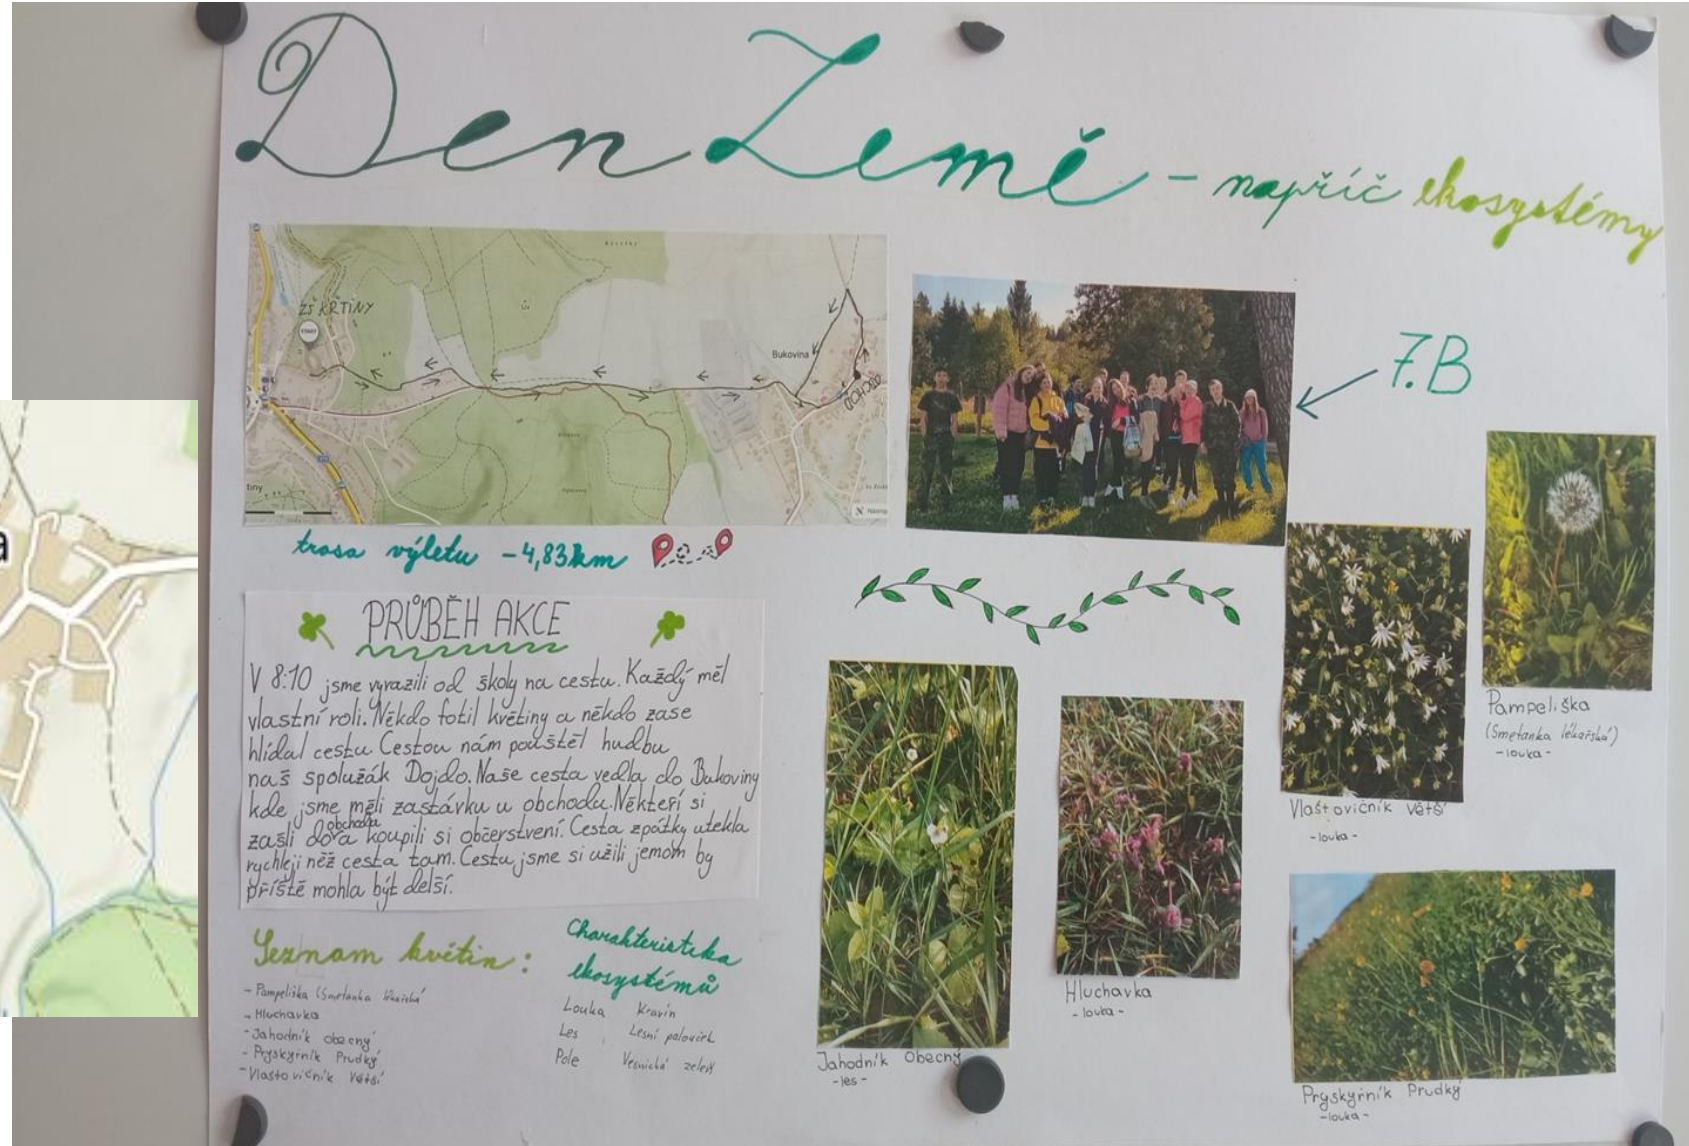 Den Země - napříč ekosystémy
ZŠ KŘTINY
START
Bukovina
OBCHOD
tiny
7.B
trasa výletu - 4,83km
PRŮBĚH AKCE
V 8:10 jsme vyrazili od školy na cestu. Každý měl
vlastní roli. Někdo fotil květiny a někdo zase
hlídal cestu. Cestou nám pouštěl hudbu
naš spolužák Dojdo. Naše cesta vedla do Bukoviny
kde jsme měli zastávku u obchodu. Někteří si
zašli do obchodu a koupili si občerstvení. Cesta zpátky utekla
rychleji než cesta tam. Cestu jsme si užili jemom by
příště mohla být delší.
Seznam květin:
- Pampeliška (Smetanka
- Hluchavka
- Jahodník obecný
- Pryskyřník Prudký
- Vlaštovičník Větší
Charakteristika
ekosystémů
Louka Kravín
Les Lesní palouček
Pole Vesnická zeleň
Jahodník Obecný
- les -
Hluchavka
- louka -
Vlaštovičník Větší
- louka -
Pampeliška
(Smetanka lékařská)
- louka -
Pryskyřník Prudký
- louka -
a